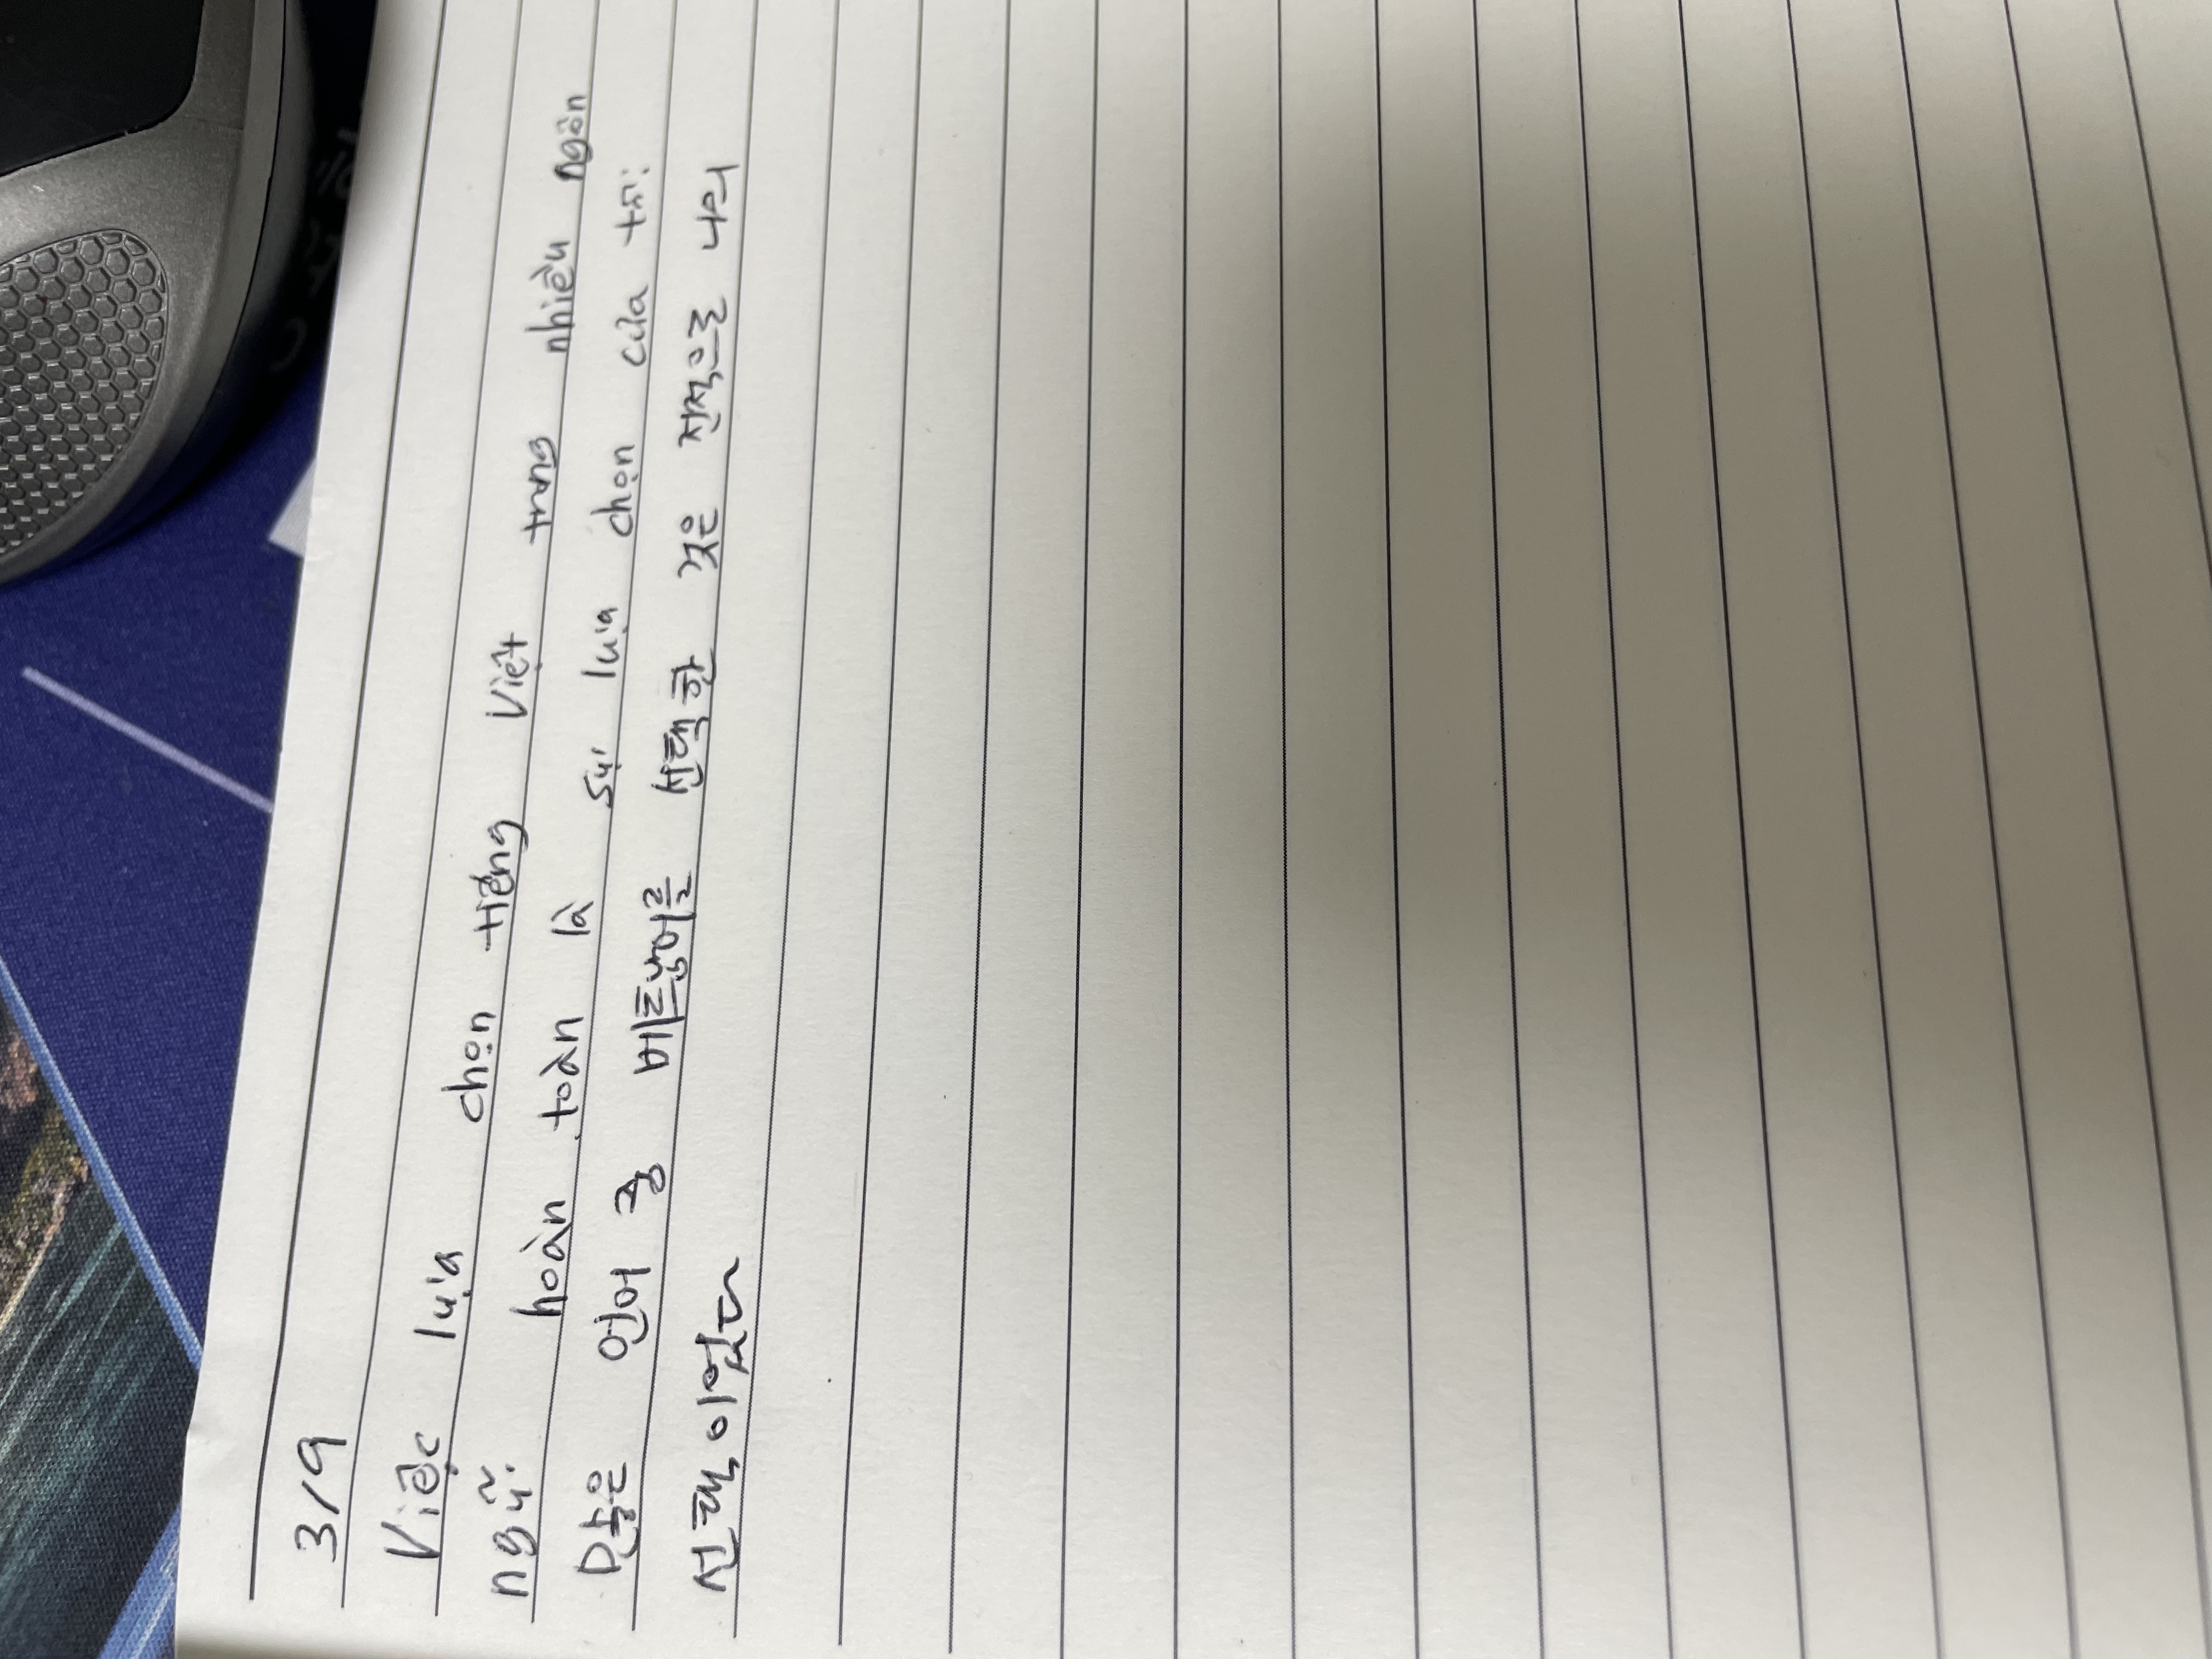 3/9
Việc lựa chọn tiếng Việt trong nhiều ngôn
ngữ. hoàn toàn là sự lựa chọn của tôi.
많은 언어 중 베트남어를 선택한 것은 전적으로 나의
선택이었다